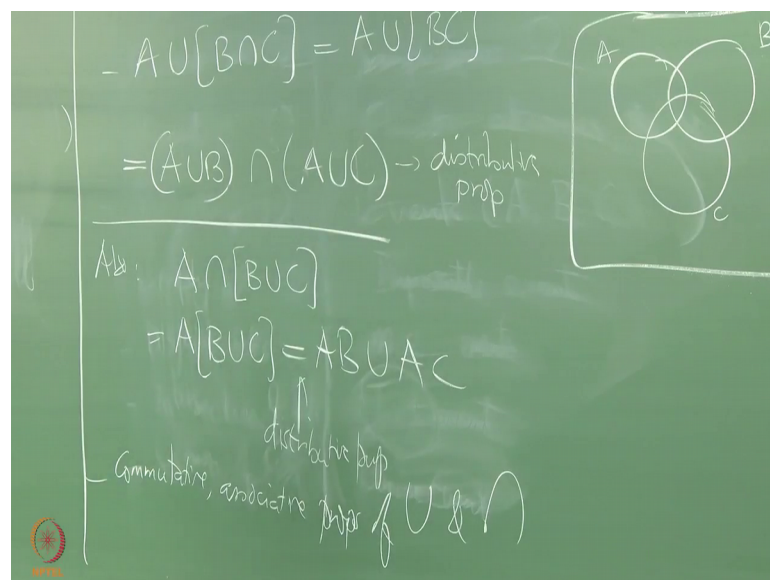 - A∪[B∩C] = A∪[BC]
=(A∪B) ∩ (A∪C) → distributive
prop
Also: A∩[B∪C]
= A[B∪C] = AB ∪ AC
distributive prop
- Commutative, associative props of ∪ & ∩
A
B
C
NPTEL